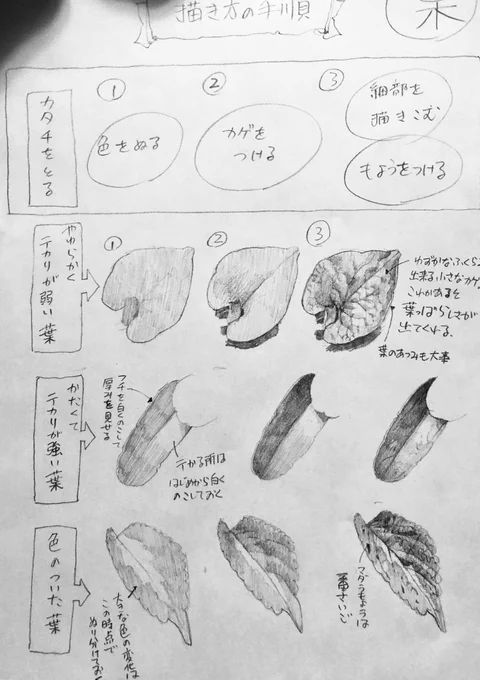 描き方の手順
木
カタチをとる
①
色をぬる
②
カゲを
つける
③
細部を
描きこむ
もようをつける
やわらかく
テカリが弱い葉
①
②
③
わずかなふくらみ
出来る小さなカゲ。
これがあると
葉っぱらしさが
出てくれる。
葉のあつみも大事
かたくて
テカリが強い葉
フチを白くのこして
厚みを見せる
テカる所は
はじめから白く
のこしておく
色のついた葉
大きな色の変化は
この時点で
ぬり分けておく
マダラもようは
一番さいご